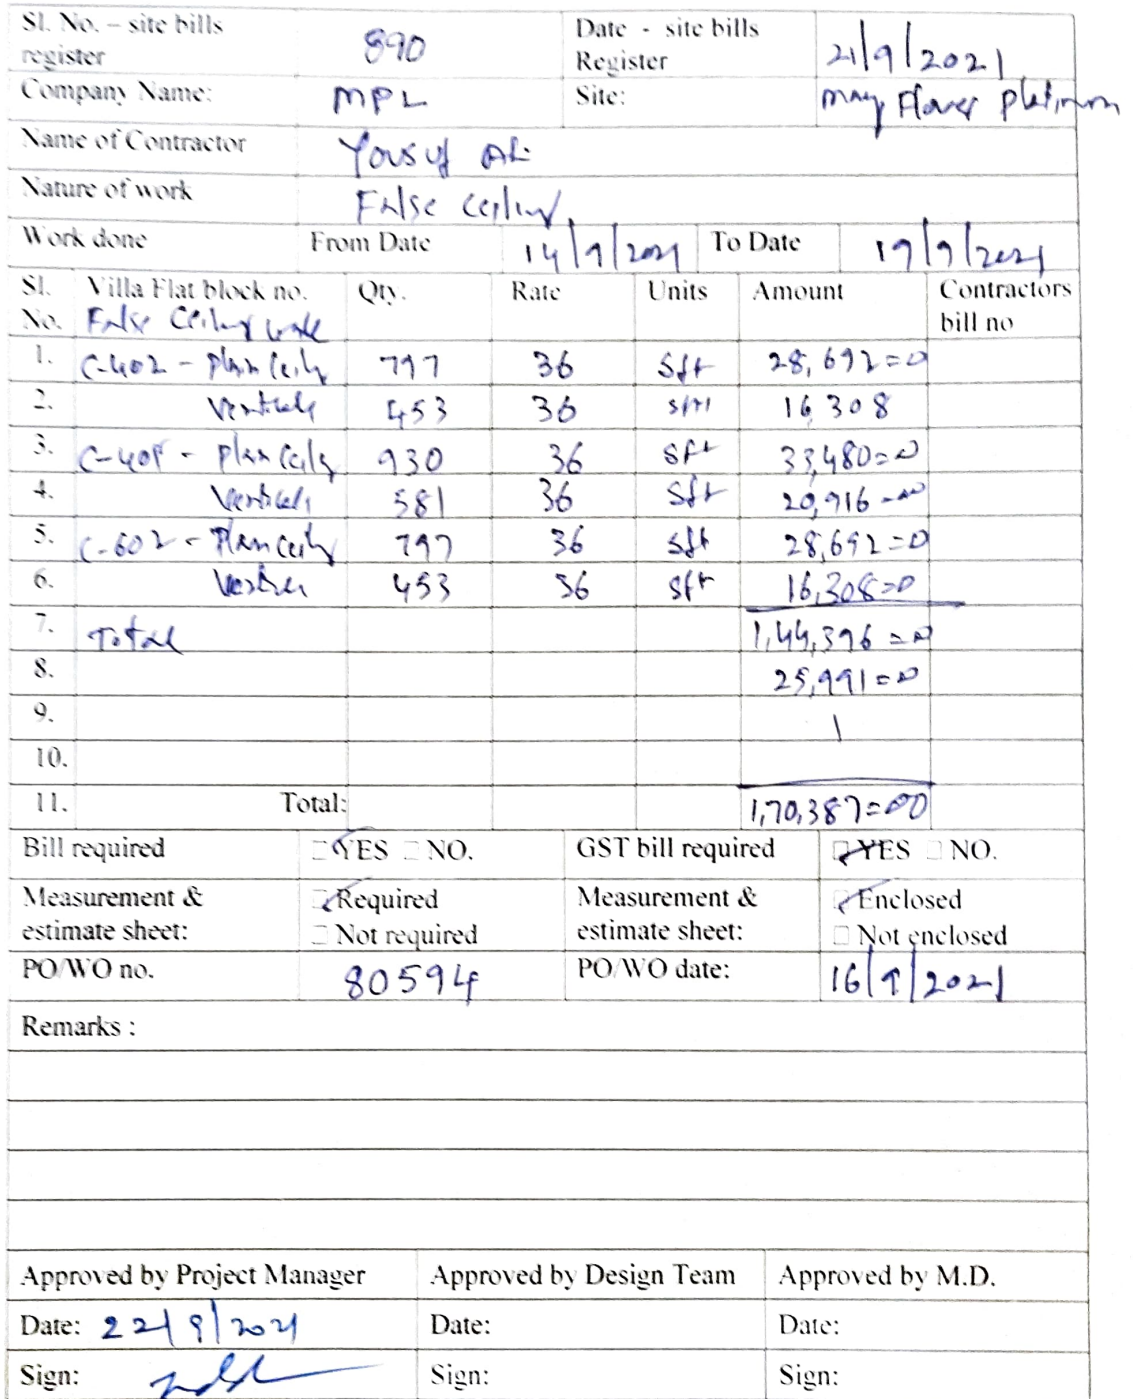 Sl. No. – site bills register 890 Date - site bills Register 21/9/2021
Company Name: MPL Site: May Flower Platinum
Name of Contractor Yousuf Ali
Nature of work False Ceiling
Work done From Date 14/9/2021 To Date 19/9/2021
Sl. No. Villa Flat block no. Qty. Rate Units Amount Contractors bill no
False Ceiling work
1. C-402 - Plan Ceily 797 36 Sft 28,692=0
2. Verticals 453 36 sft 16,308
3. Plan Ceily 930 36 Sft 33,480=0
4. Verticals 581 36 Sft 20,916=00
5. C-602 - Plan Ceily 797 36 Sft 28,692=0
6. 453 36 Sft 16,308=0
7. Total 1,44,396=0
8. 25,991=0
9.
10.
11. Total: 1,70,387=00
Bill required YES NO. GST bill required YES NO.
Measurement & estimate sheet: Required Not required Measurement & estimate sheet: Enclosed Not enclosed
PO/WO no. 80594 PO/WO date: 16/9/2021
Remarks :
Approved by Project Manager Approved by Design Team Approved by M.D.
Date: 22/9/2021 Date: Date:
Sign: Sign: Sign: